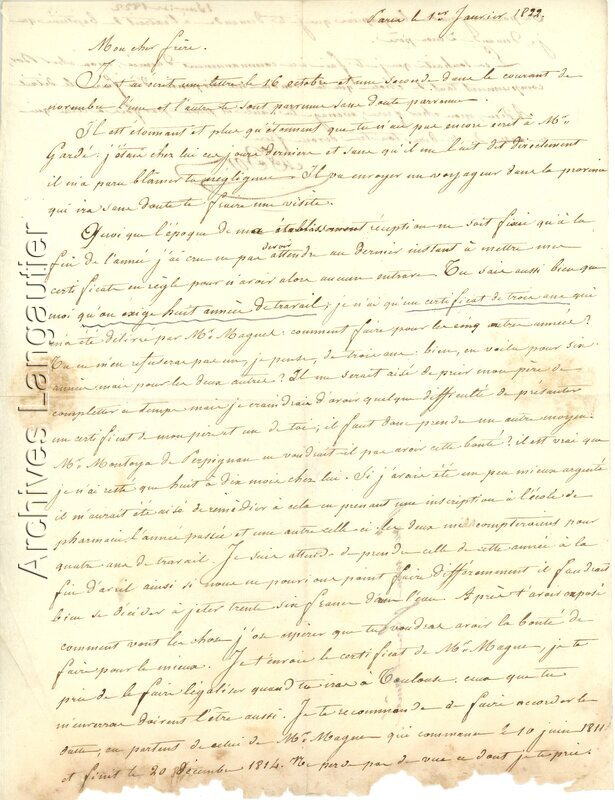 Paris le 1er Janvier 1822.
Mon cher frère.
Je t'ai écrit une lettre le 16 octobre et une seconde dans le courant de
novembre l'une et l'autre te sont parvenues sans doute
Il est étonnant et plus qu'étonnant que tu n'aie pas encore écrit à Mr.
Gardé; j'étais chez lui ces jours derniers et sans qu'il me l'ait dit directement
il m'a paru blâmer ta négligence. Il va envoyer un voyageur dans la province
qui ira sans doute te faire une visite.
Quoique l'époque de ma réception ne soit fixée qu'à la
fin de l'année j'ai cru ne pas devoir attendre au dernier instant à mettre mes
certificats en règle pour n'avoir alors aucune entrave. Tu sais aussi bien que
moi qu'on exige huit années de travail; je n'ai qu'un certificat de trois ans qui
m'a été délivré par Mr. Magnes: comment faire pour les cinq autres années?
Tu ne m'en refuseras pas un, je pense, de trois ans: bien, en voilà pour six
années mais pour les deux autres? Il me serait aisé de prier mon père de
completter le temps mais je craindrais d'avoir quelque difficulté de présenter
un certificat de mon père et un de toi; il faut donc prendre un autre moyen:
Mr. Montoya de Perpignan ne voudrait il pas avoir cette bonté? il est vrai que
je n'ai resté que huit à dix mois chez lui. Si j'avais été un peu mieux argenté
il m'aurait été aisé de remédier à cela en prenant une inscription à l'école de
pharmacie l'année passée et une autre celle-ci, les deux me compteraient pour
quatre ans de travail. Je suis à temps de prendre celle de cette année à la
fin d'avril ainsi si nous ne pouvions point faire différemment il faudrait
bien se décider à jeter trente six francs dans l'eau. Après t'avoir exposé
comment vont les choses j'ose espérer que tu voudras avoir la bonté de
faire pour le mieux. Je t'envoie le certificat de Mr. Magnes, je te
prie de le faire légaliser quand tu iras à Toulouse: ceux que tu
m'enverras doivent l'être aussi. Je te recommande de faire accorder les
dattes, en partant de celui de Mr. Magnes qui commence le 10 juin 1811
et finit le 20 Décembre 1814. Ne perds pas de vue ce dont je te prie
Archives Langautier